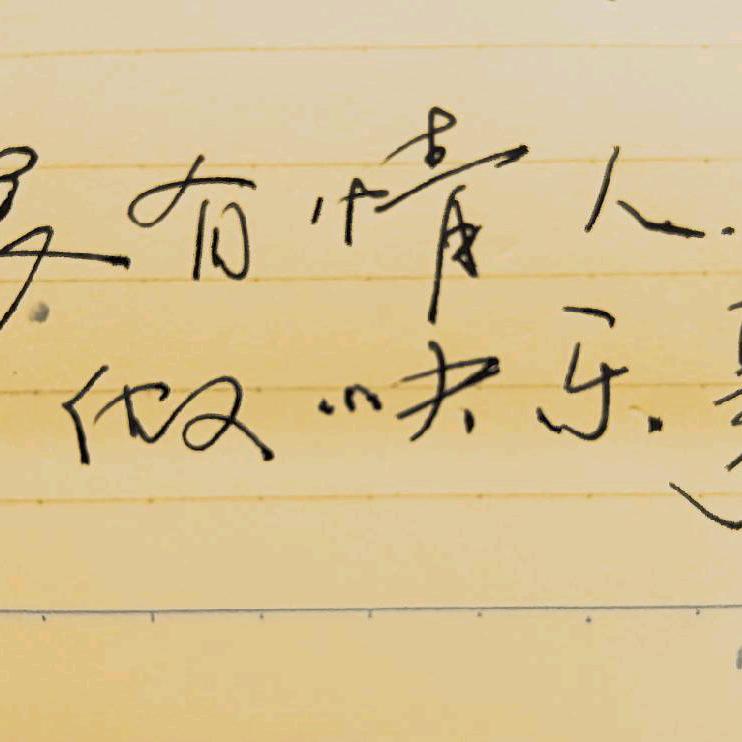 有情人
做快乐